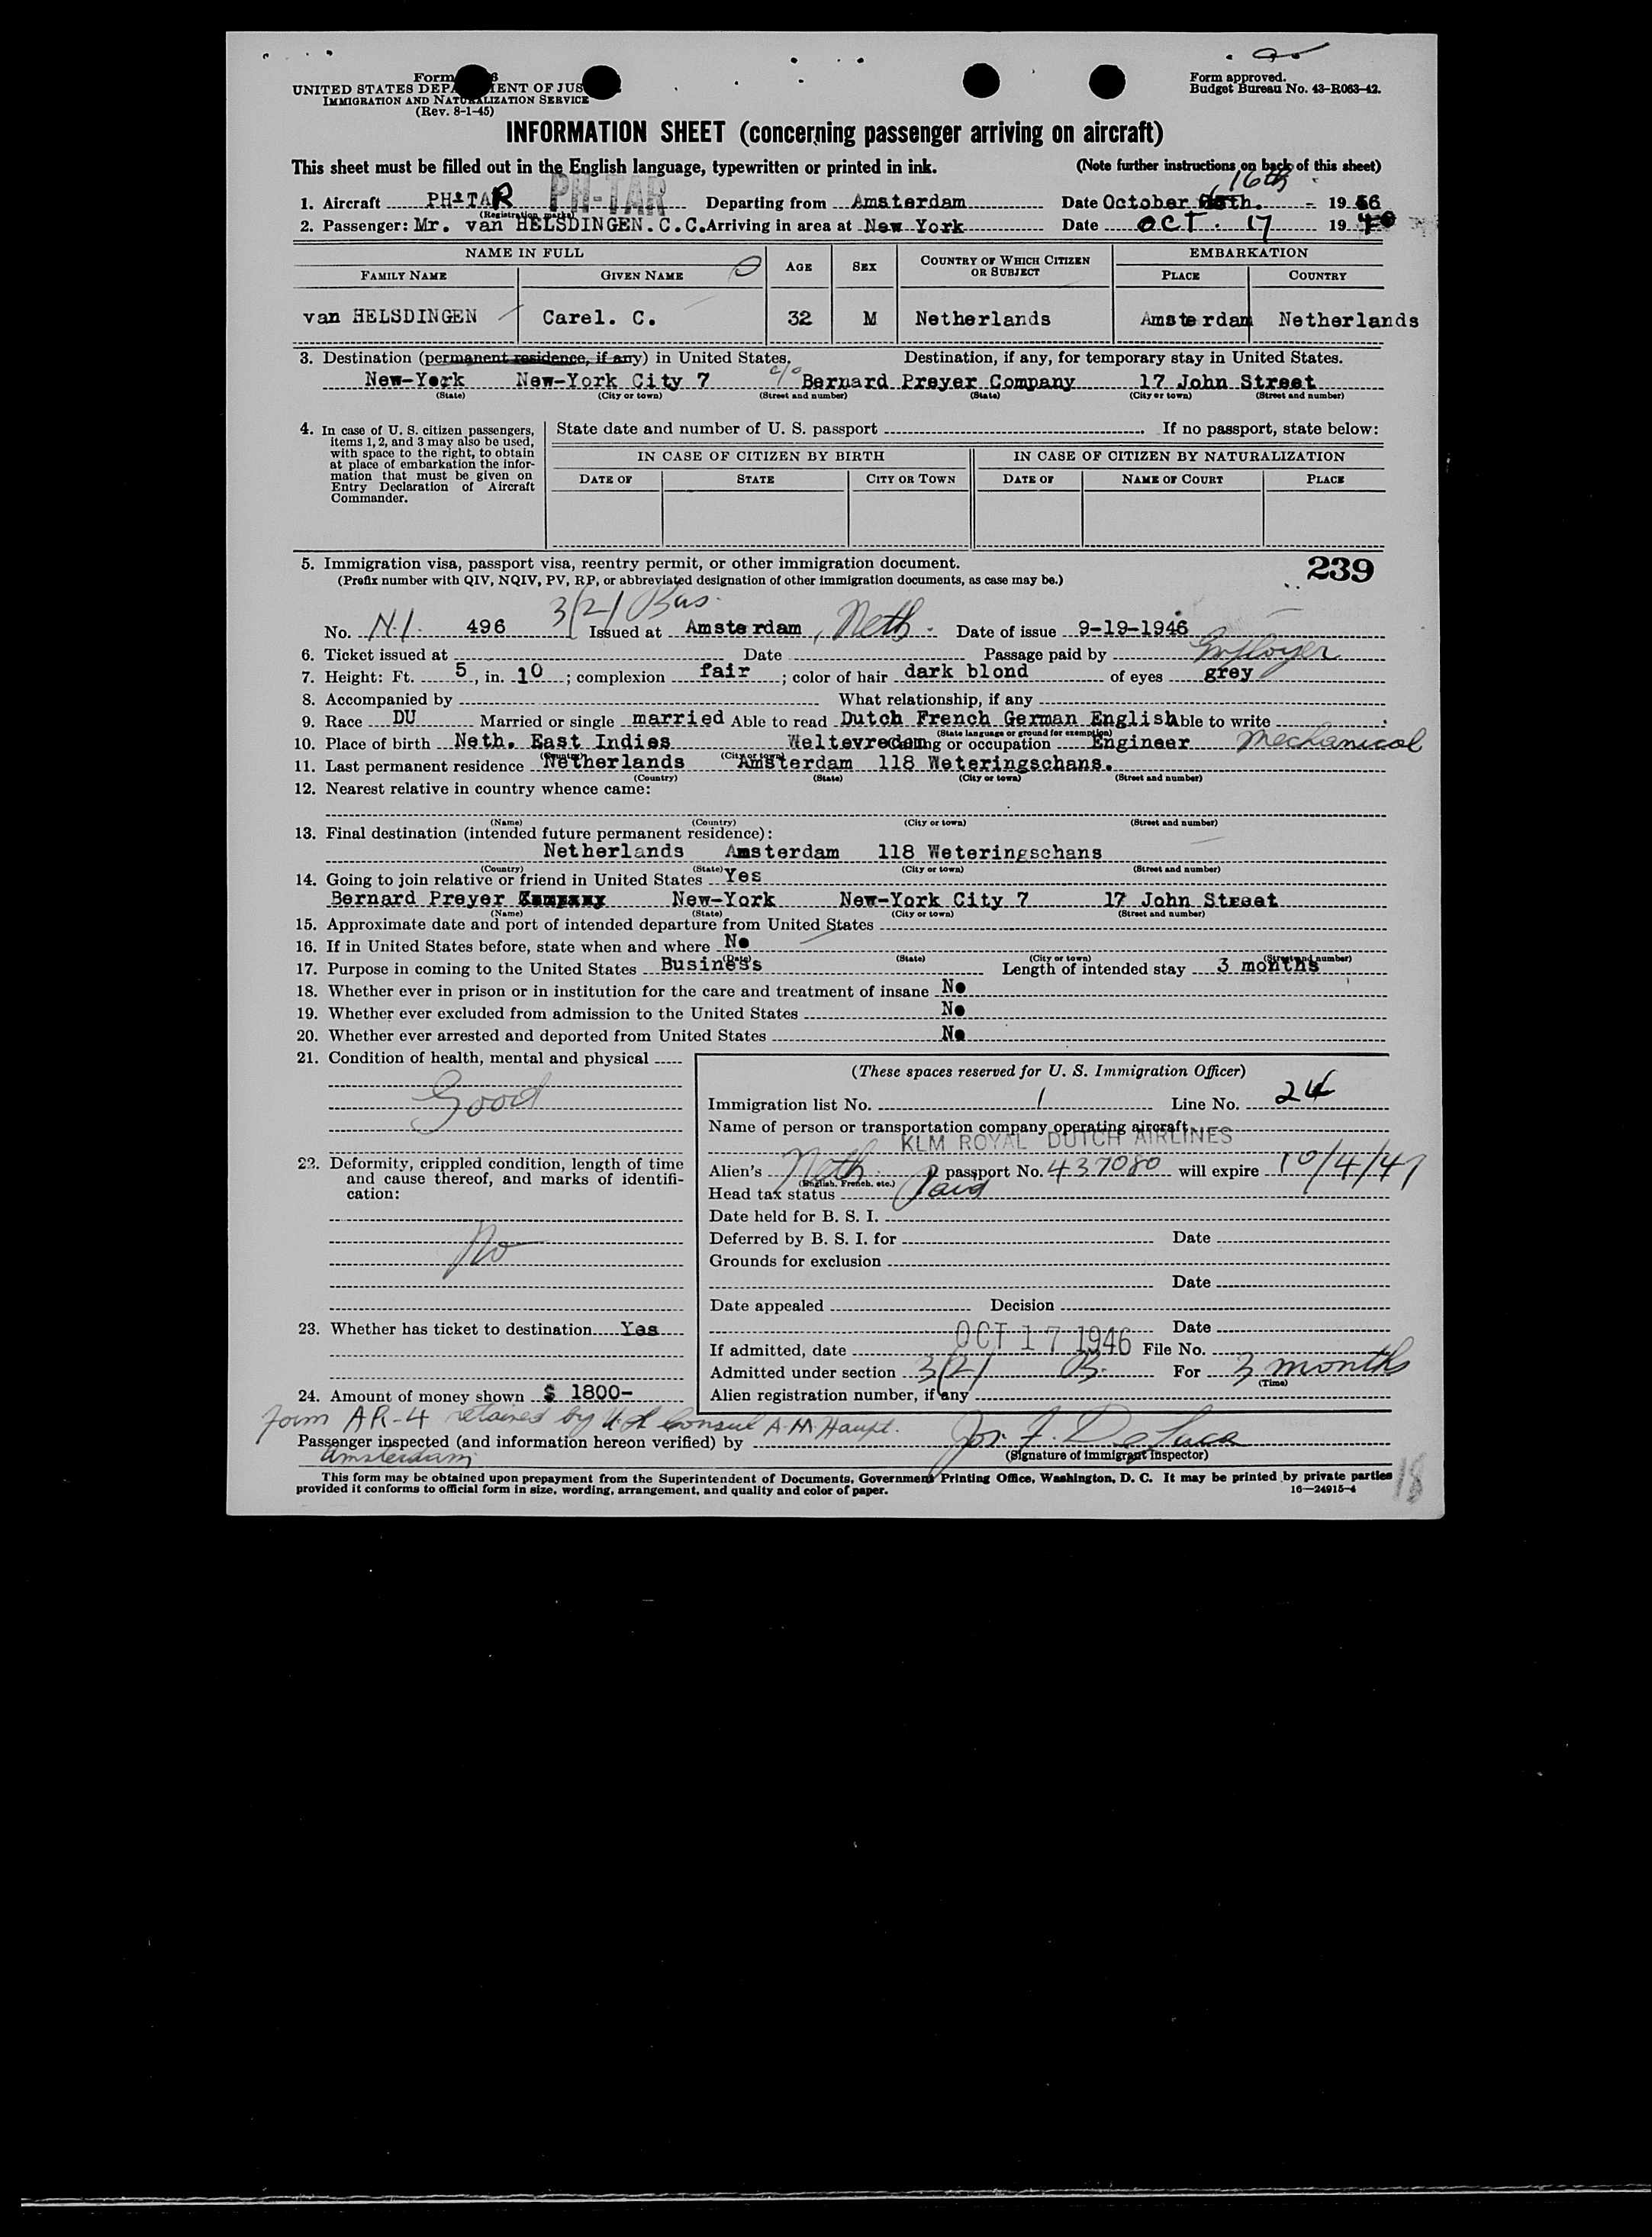 Form
UNITED STATES DEPA ENT OF JUS
IMMIGRATION AND NATURALIZATION SERVICE
(Rev. 8-1-45)
Form approved.
Budget Bureau No. 43-R063-42.
INFORMATION SHEET (concerning passenger arriving on aircraft)
This sheet must be filled out in the English language, typewritten or printed in ink. (Note further instructions on back of this sheet)
16th
1. Aircraft PH-TAR PH-TAR Departing from Amsterdam Date October 19 46
(Registration marks)
2. Passenger: Mr. van HELSDINGEN.C.C. Arriving in area at New York Date OCT. 17 19 46
NAME IN FULL AGE SEX COUNTRY OF WHICH CITIZEN OR SUBJECT EMBARKATION
FAMILY NAME GIVEN NAME PLACE COUNTRY
van HELSDINGEN Carel. C. 32 M Netherlands Amsterdam Netherlands
3. Destination (permanent residence, if any) in United States. Destination, if any, for temporary stay in United States.
New-York New-York City 7 c/o Bernard Preyer Company 17 John Street
(State) (City or town) (Street and number) (State) (City or town) (Street and number)
4. In case of U. S. citizen passengers,
items 1, 2, and 3 may also be used,
with space to the right, to obtain
at place of embarkation the infor-
mation that must be given on
Entry Declaration of Aircraft
Commander.
State date and number of U. S. passport If no passport, state below:
IN CASE OF CITIZEN BY BIRTH IN CASE OF CITIZEN BY NATURALIZATION
DATE OF STATE CITY OR TOWN DATE OF NAME OF COURT PLACE
5. Immigration visa, passport visa, reentry permit, or other immigration document. 239
(Prefix number with QIV, NQIV, PV, RP, or abbreviated designation of other immigration documents, as case may be.)
3/2/ Bus.
No. N.I. 496 Issued at Amsterdam, Neth. Date of issue 9-19-1946
6. Ticket issued at Date Passage paid by Employer
7. Height: Ft. 5, in. 10; complexion fair; color of hair dark blond of eyes grey
8. Accompanied by What relationship, if any
9. Race DU Married or single married Able to read Dutch French German English Able to write
(State language or ground for exemption)
10. Place of birth Neth. East Indies Weltevreden Calling or occupation Engineer Mechanical
(Country) (City or town)
11. Last permanent residence Netherlands Amsterdam 118 Weteringschans.
(Country) (State) (City or town) (Street and number)
12. Nearest relative in country whence came:
(Name) (Country) (City or town) (Street and number)
13. Final destination (intended future permanent residence):
Netherlands Amsterdam 118 Weteringschans
(Country) (State) (City or town) (Street and number)
14. Going to join relative or friend in United States Yes
Bernard Preyer Company New-York New-York City 7 17 John Street
(Name) (State) (City or town) (Street and number)
15. Approximate date and port of intended departure from United States
16. If in United States before, state when and where No
(Date) (State) (City or town) (Street and number)
17. Purpose in coming to the United States Business Length of intended stay 3 months
18. Whether ever in prison or in institution for the care and treatment of insane No
19. Whether ever excluded from admission to the United States No
20. Whether ever arrested and deported from United States No
21. Condition of health, mental and physical
Good
22. Deformity, crippled condition, length of time
and cause thereof, and marks of identifi-
cation:
No
23. Whether has ticket to destination Yes
24. Amount of money shown $ 1800-
(These spaces reserved for U. S. Immigration Officer)
Immigration list No. 1 Line No. 24
Name of person or transportation company operating aircraft
KLM ROYAL DUTCH AIRLINES
Alien's Neth. passport No. 437080 will expire 10/4/47
(English, French, etc.)
Head tax status Paid
Date held for B. S. I.
Deferred by B. S. I. for Date
Grounds for exclusion
Date
Date appealed Decision
Date
If admitted, date OCT 17 1946 File No.
Admitted under section 3/2/ B. For 3 months
(Time)
Alien registration number, if any
Form AR-4 retained by U.S. Consul A.M. Haupt.
Amsterdam
Passenger inspected (and information hereon verified) by Jos. F. DeLuca
(Signature of immigrant inspector)
This form may be obtained upon prepayment from the Superintendent of Documents, Government Printing Office, Washington, D. C. It may be printed by private parties
provided it conforms to official form in size, wording, arrangement, and quality and color of paper. 16—24915-4
18